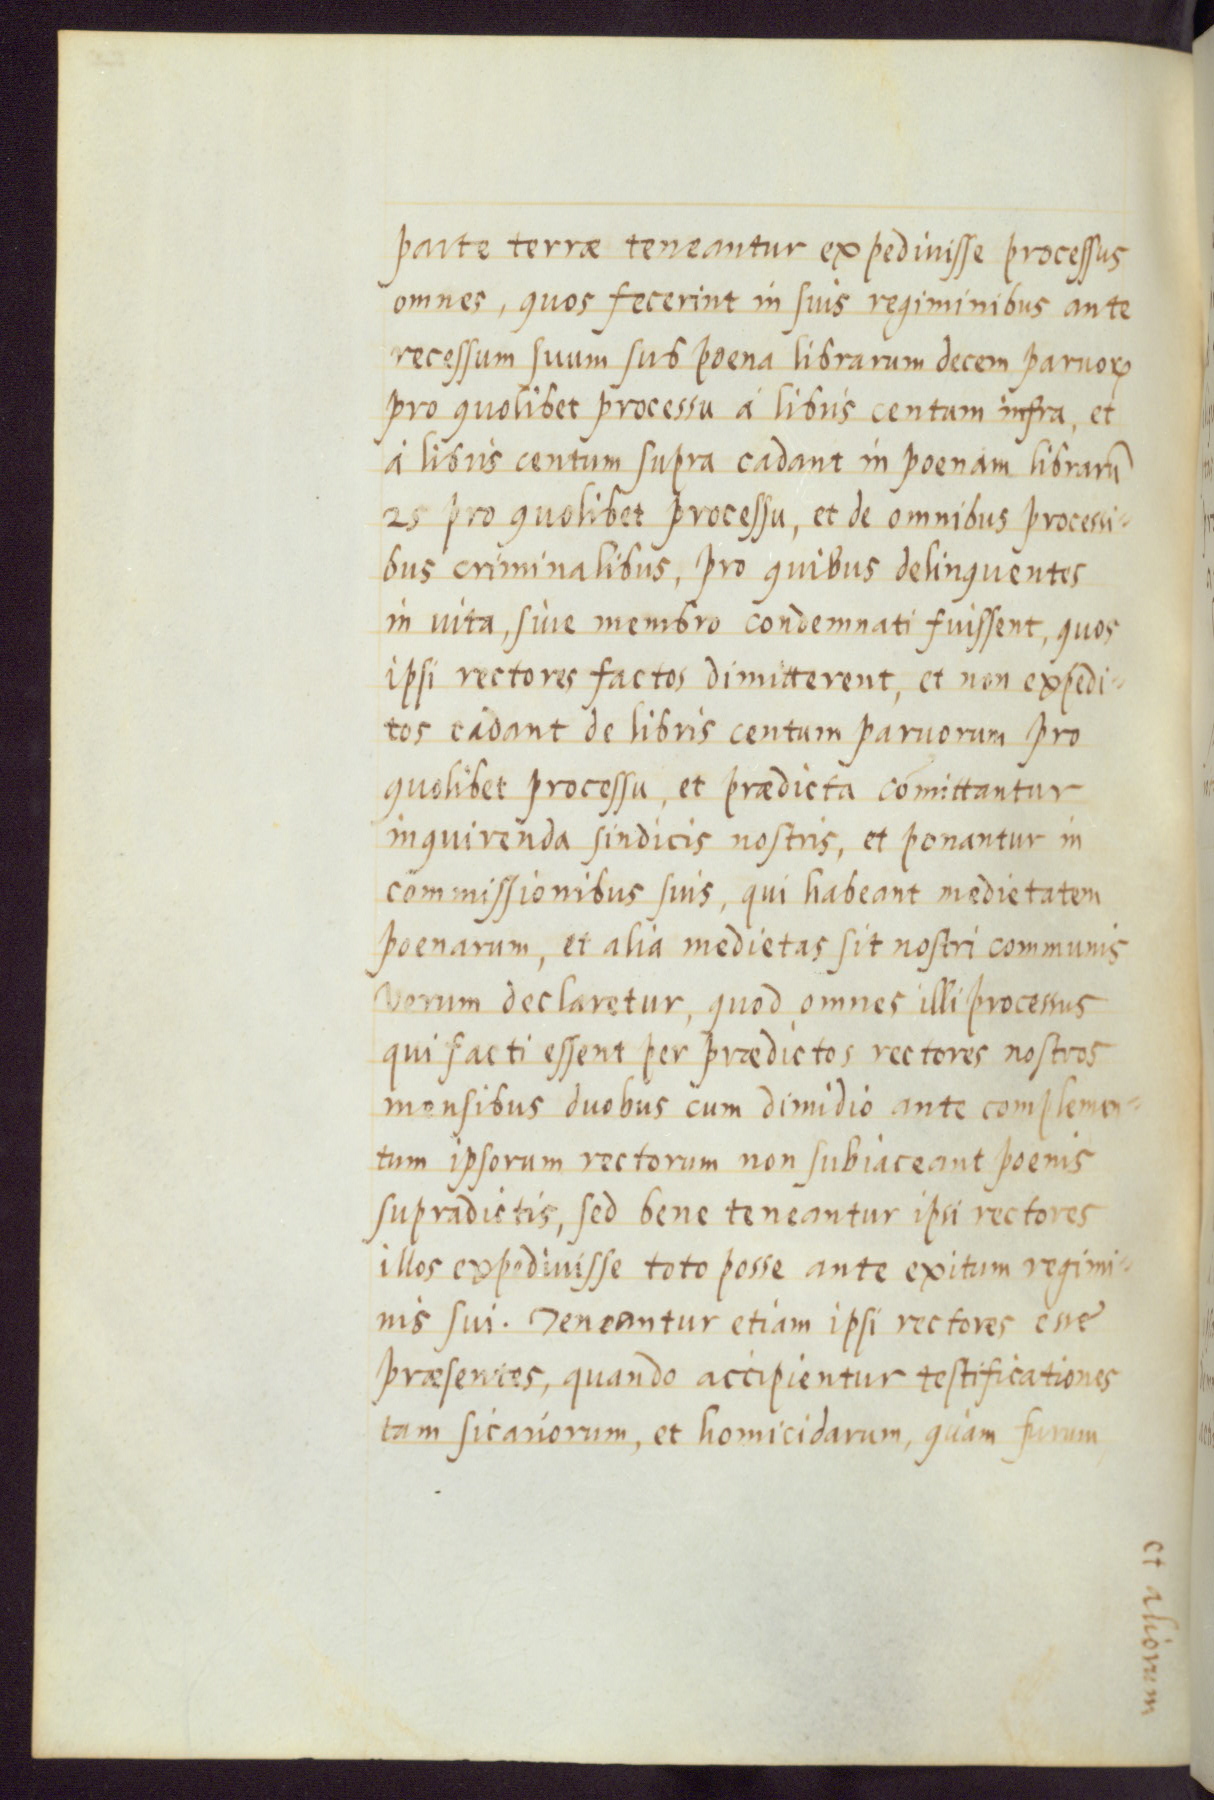 parte terræ teneantur expediuisse processus
omnes, quos fecerint in suis regiminibus ante
recessum suum sub poena librarum decem paruoꝝ
pro quolibet processu á libris centum infra, et
á libris centum supra cadant in poenam librarũ
25 pro quolibet processu, et de omnibus processi-
bus criminalibus, pro quibus delinquentes
in uita, siue membro condemnati fuissent, quos
ipsi rectores factos dimitterent, et non expedi-
tos cadant de libris centum paruorum pro
quolibet processu, et prædicta cõmittantur
inquirenda sindicis nostris, et ponantur in
commissionibus suis, qui habeant medietatem
poenarum, et alia medietas sit nostri communis
Verum declaretur, quod omnes illi processus
qui facti essent per prædictos rectores nostros
mensibus duobus cum dimidio ante complemen-
tum ipsorum rectorum non subiaceant poenis
supradictis, sed bene teneantur ipsi rectores
illos expediuisse toto posse ante exitum regimi-
nis sui. Teneantur etiam ipsi rectores esse
præsentes, quando accipientur testificationes
tam sicariorum, et homicidarum, quàm furum
et aliorum